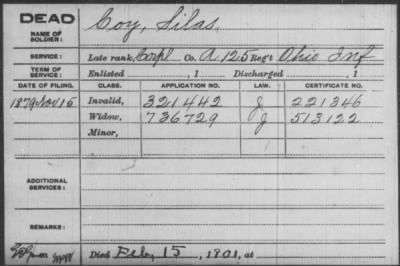 DEAD
NAME OF SOLDIER: Coy, Silas
SERVICE: Late rank, Corpl Co. A, 125 Reg't Ohio Inf
TERM OF SERVICE: Enlisted , 1 Discharged , 1
DATE OF FILING. CLASS. APPLICATION NO. LAW. CERTIFICATE NO.
1879 Nov 15 Invalid, 321442 J 221346
Widow, 736729 J 513122
Minor,
ADDITIONAL SERVICES:
REMARKS:
Died Feb, 15, 1901, at